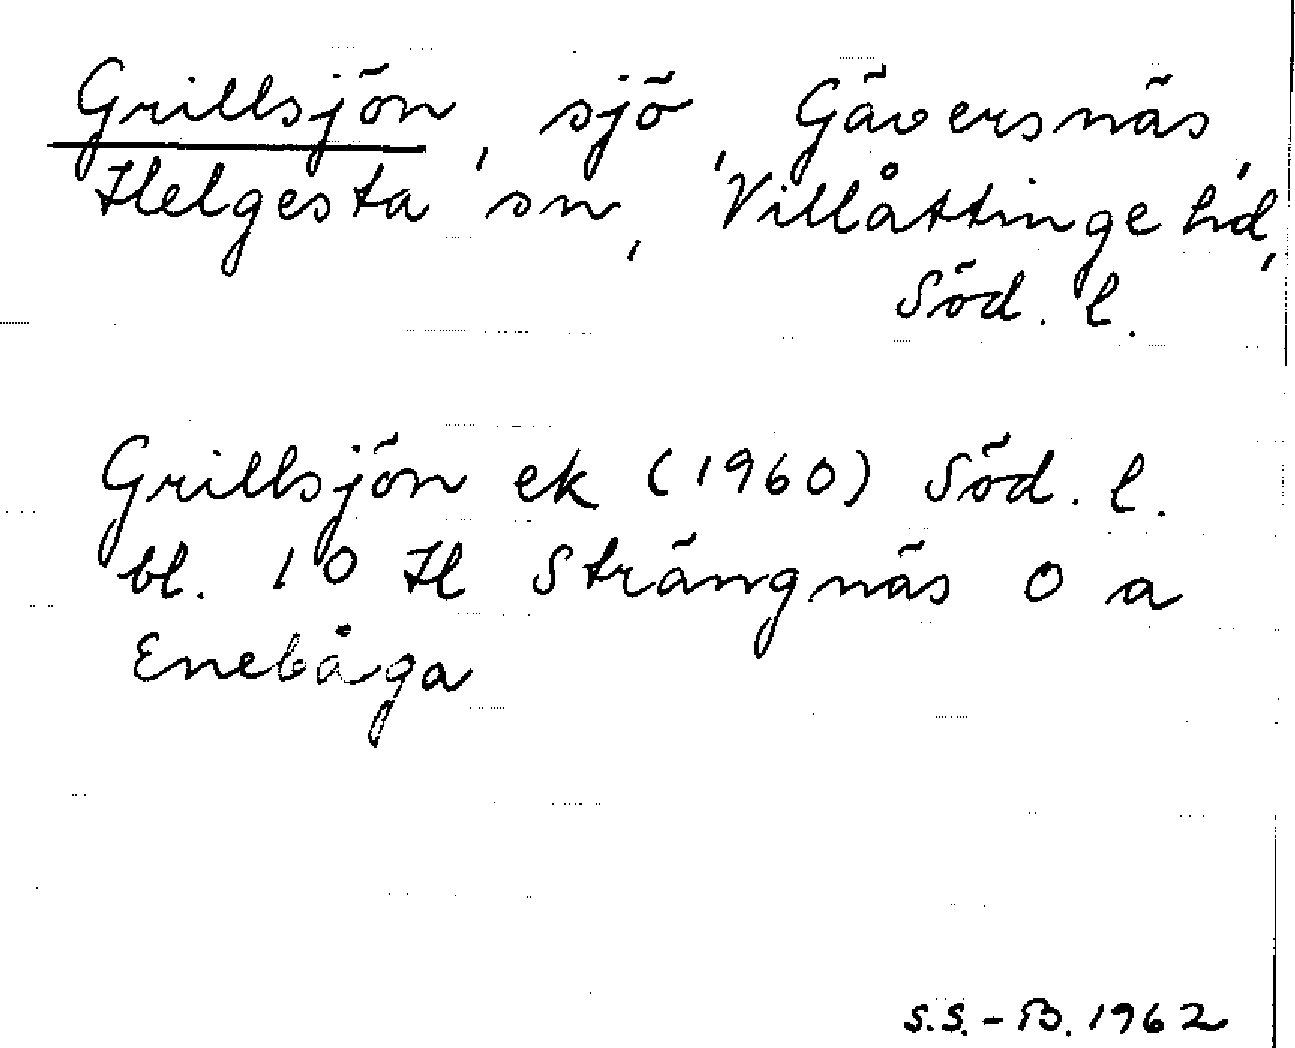 Grillsjön, sjö, Gäversnäs,
Helgesta sn, Villåttinge hd,
Söd. l.
Grillsjön ek (1960) Söd. l.
bl. 10 H Strängnäs 0 a
Enebåga
S.S.-B. 1962